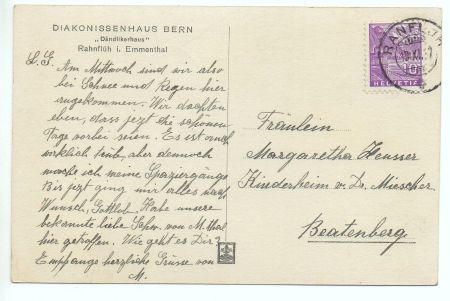 DIAKONISSENHAUS BERN
„Dändlikerhaus"
Rahnflüh i. Emmenthal
L. G.
Am Mittwoch sind wir also
bei Schnee und Regen hier
angekommen. Wir dachten
eben, dass jetzt die schönen
Tage vorbei seien. Es ist auch
wirklich trüb, aber dennoch
mache ich meine Spaziergänge.
Bis jetzt ging mir alles nach
Wunsch, Gottlob. Habe unsere
bekannte liebe Schw. von M.thal
hier getroffen. Wie geht es Dir?
Empfange herzliche Grüsse von
M.
RANFLÜH
10
HELVETIA
Fräulein
Margaretha Heusser
Kinderheim v. Dr. Miescher
Beatenberg